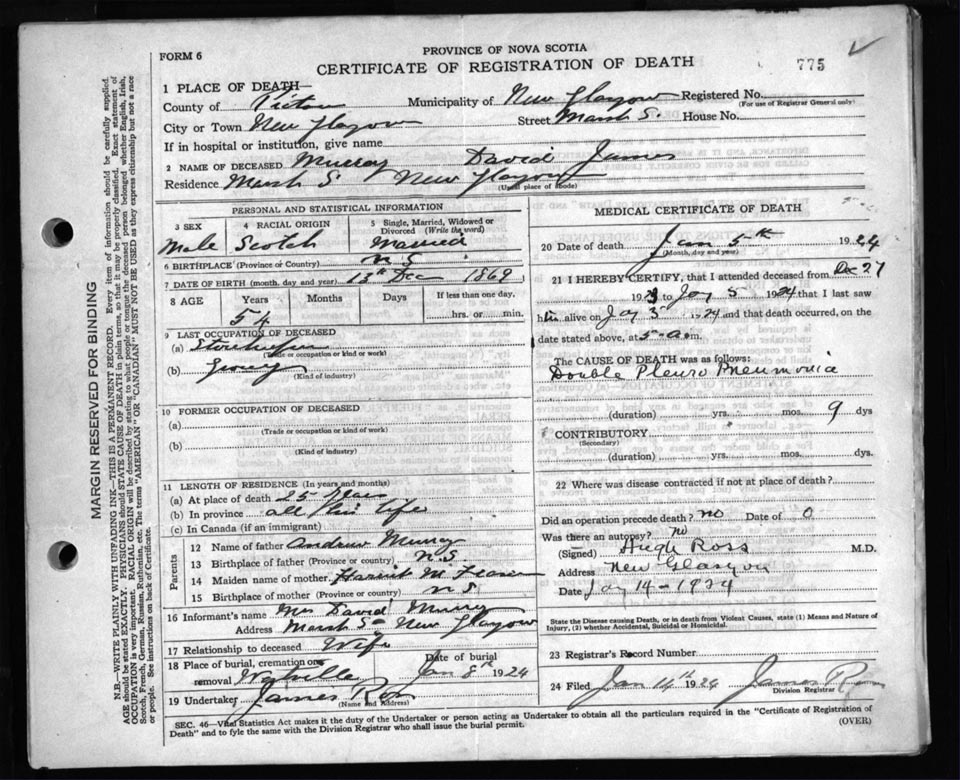 FORM 6
PROVINCE OF NOVA SCOTIA
CERTIFICATE OF REGISTRATION OF DEATH
775
1 PLACE OF DEATH—
County of Pictou Municipality of New Glasgow Registered No.
(For use of Registrar General only)
City or Town New Glasgow Street Marsh S. House No.
If in hospital or institution, give name
2 NAME OF DECEASED Murray David James
Residence Marsh S New Glasgow
(Usual place of abode)
PERSONAL AND STATISTICAL INFORMATION
3 SEX 4 RACIAL ORIGIN 5 Single, Married, Widowed or Divorced (Write the word)
Male Scotch Married
6 BIRTHPLACE (Province or Country) N S
7 DATE OF BIRTH (month, day and year) 13th Dec 1869
8 AGE Years Months Days If less than one day,
54 hrs. or min.
9 LAST OCCUPATION OF DECEASED
(a)
(Trade or occupation or kind or work)
(b)
(Kind of industry)
10 FORMER OCCUPATION OF DECEASED
(a)
(Trade or occupation or kind of work)
(b)
(Kind of industry)
11 LENGTH OF RESIDENCE (In years and months)
(a) At place of death 25 Years
(b) In province all his life
(c) In Canada (if an immigrant)
Parents
12 Name of father Andrew Murray
13 Birthplace of father (Province or country) N.S.
14 Maiden name of mother Harriet M Fraser
15 Birthplace of mother (Province or country) N S
16 Informant's name Mrs David Murray
Address Marsh S New Glasgow
17 Relationship to deceased Wife
18 Place of burial, cremation or removal Date of burial Jan 8th 1924
19 Undertaker James Ross
(Name and Address)
MEDICAL CERTIFICATE OF DEATH
20 Date of death Jan 5th 1924
(Month, day and year)
21 I HEREBY CERTIFY, that I attended deceased from Dec 27
1923 to Jay 5 1924 that I last saw
him alive on Jay 5 1924 and that death occurred, on the
date stated above, at 5 a m.
The CAUSE OF DEATH was as follows:
Double Pleuro Pneumonia
(duration) yrs. mos. 9 dys
CONTRIBUTORY
(Secondary)
(duration) yrs. mos. dys.
22 Where was disease contracted if not at place of death?
Did an operation precede death? no Date of 0
Was there an autopsy? no
(Signed) Hugh Ross M.D.
Address New Glasgow
Date Jay 14 - 1924
State the Disease causing Death, or in death from Violent Causes, state (1) Means and Nature of Injury, (2) whether Accidental, Suicidal or Homicidal.
23 Registrar's Record Number
24 Filed Jan 14th 1924 James Ross
Division Registrar
SEC. 46—Vital Statistics Act makes it the duty of the Undertaker or person acting as Undertaker to obtain all the particulars required in the "Certificate of Registration of
Death" and to fyle the same with the Division Registrar who shall issue the burial permit.
(OVER)
MARGIN RESERVED FOR BINDING
N.B.—WRITE PLAINLY WITH UNFADING INK—THIS IS A PERMANENT RECORD. Every item of information should be carefully supplied.
AGE should be stated EXACTLY. PHYSICIANS should STATE CAUSE OF DEATH in plain terms, so that it may be properly classified. Exact statement of
OCCUPATION is very important. RACIAL ORIGIN will be described by stating to what people or tongue the deceased person belonged whether English, Irish,
Scotch, French, German, Russian, Ruthenian, etc. The terms "AMERICAN" or "CANADIAN" MUST NOT BE USED as they express citizenship but not a race
or people. See instructions on back of Certificate.